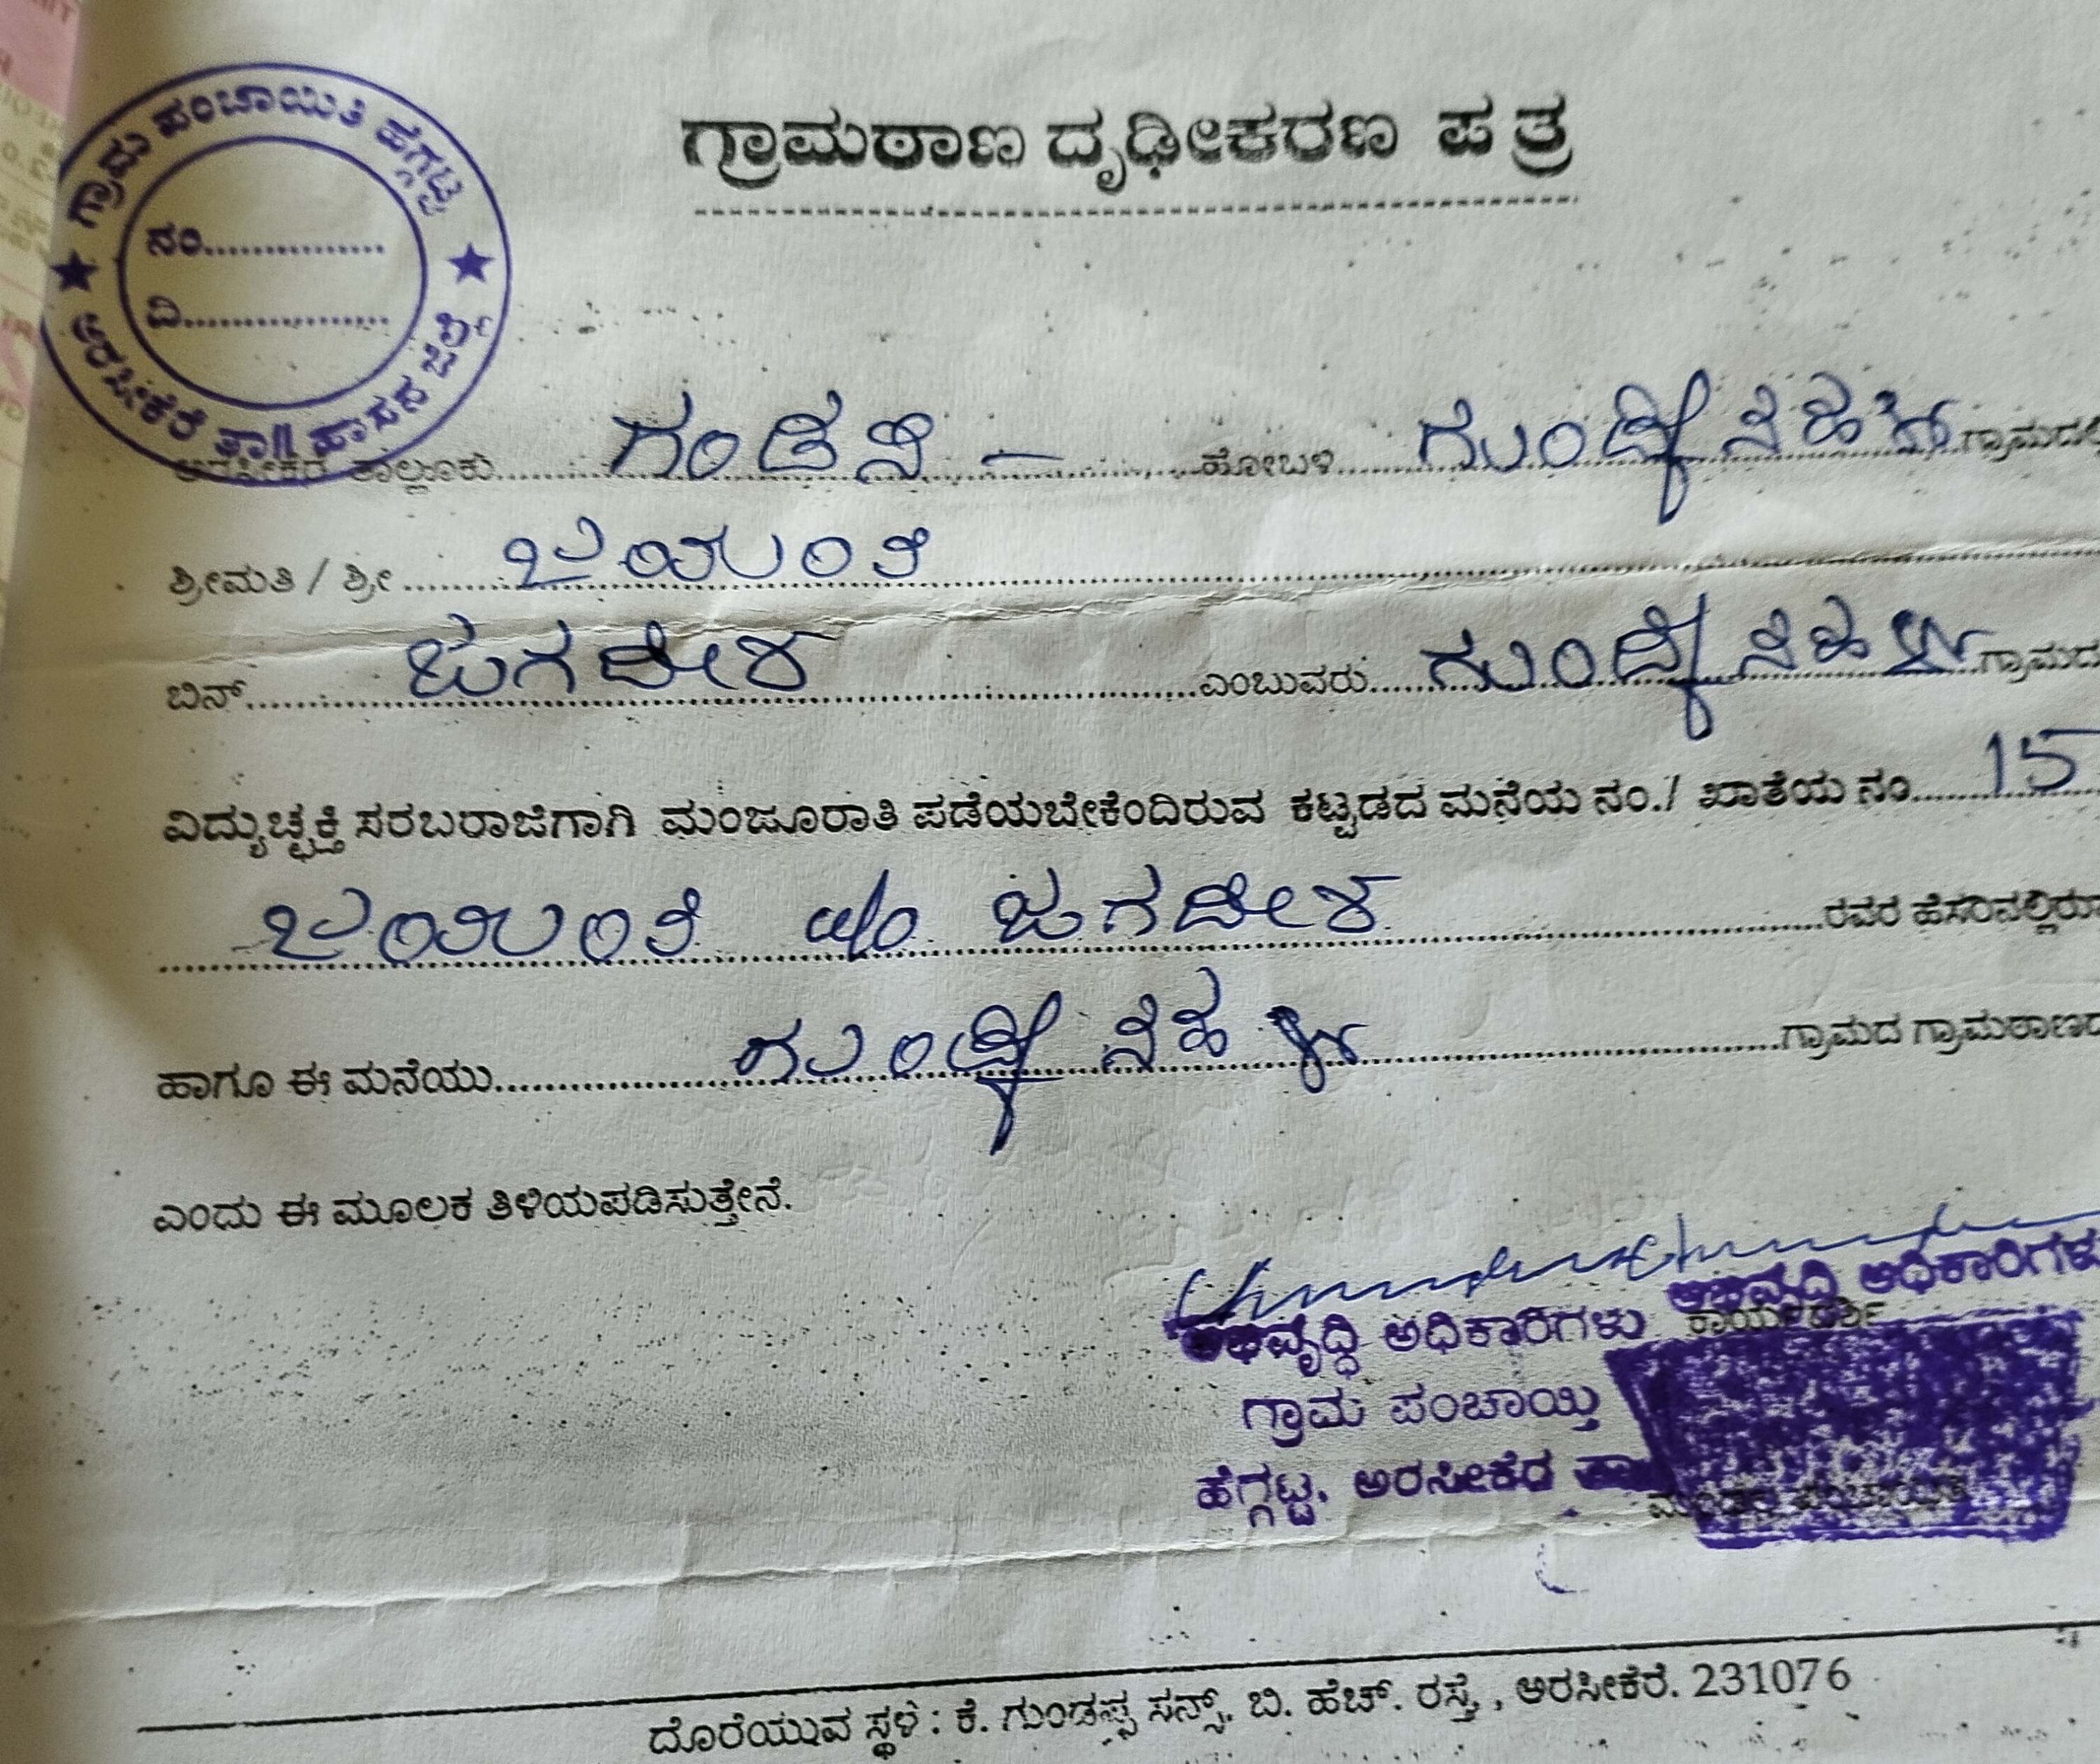 ಗ್ರಾಮ ಪಂಚಾಯಿತಿ ಹೆಗ್ಗಟ್ಟ
ನಂ..................
ದಿ....................
ಅರಸೀಕೆರೆ ತಾ|| ಹಾಸನ ಜಿಲ್ಲೆ
ಗ್ರಾಮಠಾಣ ದೃಢೀಕರಣ ಪತ್ರ
ಅರಸೀಕೆರೆ ತಾಲ್ಲೂಕು ಗಂಡಸಿ – ಹೋಬಳಿ ಗ್ರಾಮದಲ್ಲಿ
ಶ್ರೀಮತಿ / ಶ್ರೀ ಜಯಂತಿ
ಬಿನ್ ಜಗದೀಶ ಎಂಬುವರು ಗ್ರಾಮದ
ವಿದ್ಯುಚ್ಛಕ್ತಿ ಸರಬರಾಜಿಗಾಗಿ ಮಂಜೂರಾತಿ ಪಡೆಯಬೇಕೆಂದಿರುವ ಕಟ್ಟಡದ ಮನೆಯ ನಂ./ ಖಾತೆಯ ನಂ 15
ಜಯಂತಿ ಜಗದೀಶ ರವರ ಹೆಸರಿನಲ್ಲಿರು
ಹಾಗೂ ಈ ಮನೆಯು ಗ್ರಾಮದ ಗ್ರಾಮಠಾಣದ
ಎಂದು ಈ ಮೂಲಕ ತಿಳಿಯಪಡಿಸುತ್ತೇನೆ.
ಅಭಿವೃದ್ಧಿ ಅಧಿಕಾರಿಗಳು
ಕಾರ್ಯದರ್ಶಿ
ಅಭಿವೃದ್ಧಿ ಅಧಿಕಾರಿಗಳು
ಗ್ರಾಮ ಪಂಚಾಯ್ತಿ
ಹೆಗ್ಗಟ್ಟ, ಅರಸೀಕೆರೆ
ಮಂಡಲ ಪಂಚಾಯಿತಿ
ದೊರೆಯುವ ಸ್ಥಳ : ಕೆ. ಗುಂಡಪ್ಪ ಸನ್ಸ್, ಬಿ. ಹೆಚ್. ರಸ್ತೆ, ಅರಸೀಕೆರೆ. 231076